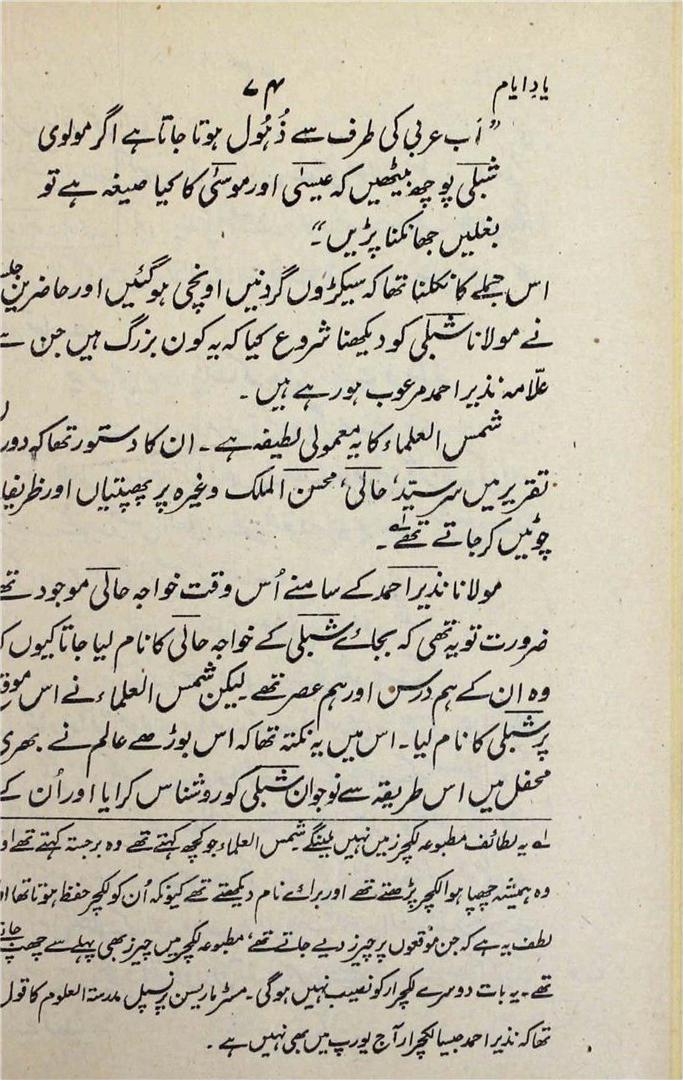 یادِ ایام ۷۴
”اَب عربی کی طرف سے ذُہُول ہوتا جاتا ہے اگر مولوی
شبلی پوچھ بیٹھیں کہ عیسٰی اور موسٰی کا کیا صیغہ ہے تو
بغلیں جھانکنا پڑیں“۔
اس جملے کا نکلنا تھا کہ سیکڑوں گردنیں اونچی ہوگئیں اور حاضرینِ جلسہ
نے مولانا شبلی کو دیکھنا شروع کیا کہ یہ کون بزرگ ہیں جن سے
علّامہ نذیر احمد مرعوب ہورہے ہیں۔
شمس العلماء کا یہ معمولی لطیفہ ہے۔ ان کا دستور تھا کہ دورانِ
تقریر میں سرسیّد، حالی، محسن الملک وغیرہ پر پھبتیاں اور
چوٹیں کرجاتے تھے لہ۔
مولانا نذیر احمد کے سامنے اُس وقت خواجہ حالی موجود تھے
ضرورت تو یہ تھی کہ بجائے شبلی کے خواجہ حالی کا نام لیا جاتا کیوں کہ
وہ ان کے ہم درس اور ہم عصر تھے۔ لیکن شمس العلماء نے اس موقع
پر شبلی کا نام لیا۔ اس میں یہ نکتہ تھا کہ اس بوڑھے عالم نے بھری
محفل میں اس طریقہ سے نوجوان شبلی کو روشناس کرایا اور اُن کے
لہ یہ لطائف مطبوعہ لکچرز میں نہیں ملینگے شمس العلماء جو کچھ کہتے تھے وہ برجستہ کہتے تھے اور
وہ ہمیشہ چھپا ہوا لکچر پڑھتے تھے اور برائے نام دیکھتے تھے کیونکہ اُن کو لکچر حفظ ہوتا تھا اور
لطف یہ ہے کہ جن موقعوں پر چیرز دیے جاتے تھے، مطبوعہ لکچر میں چیرز بھی پہلے سے چھپ جاتے
تھے۔ یہ بات دوسرے لکچرار کو نصیب نہیں ہوگی۔ مسٹر ماریسن پرنسپل مدرستہ العلوم کا قول
تھا کہ نذیر احمد جیسا لکچرار آج یورپ میں بھی نہیں ہے۔